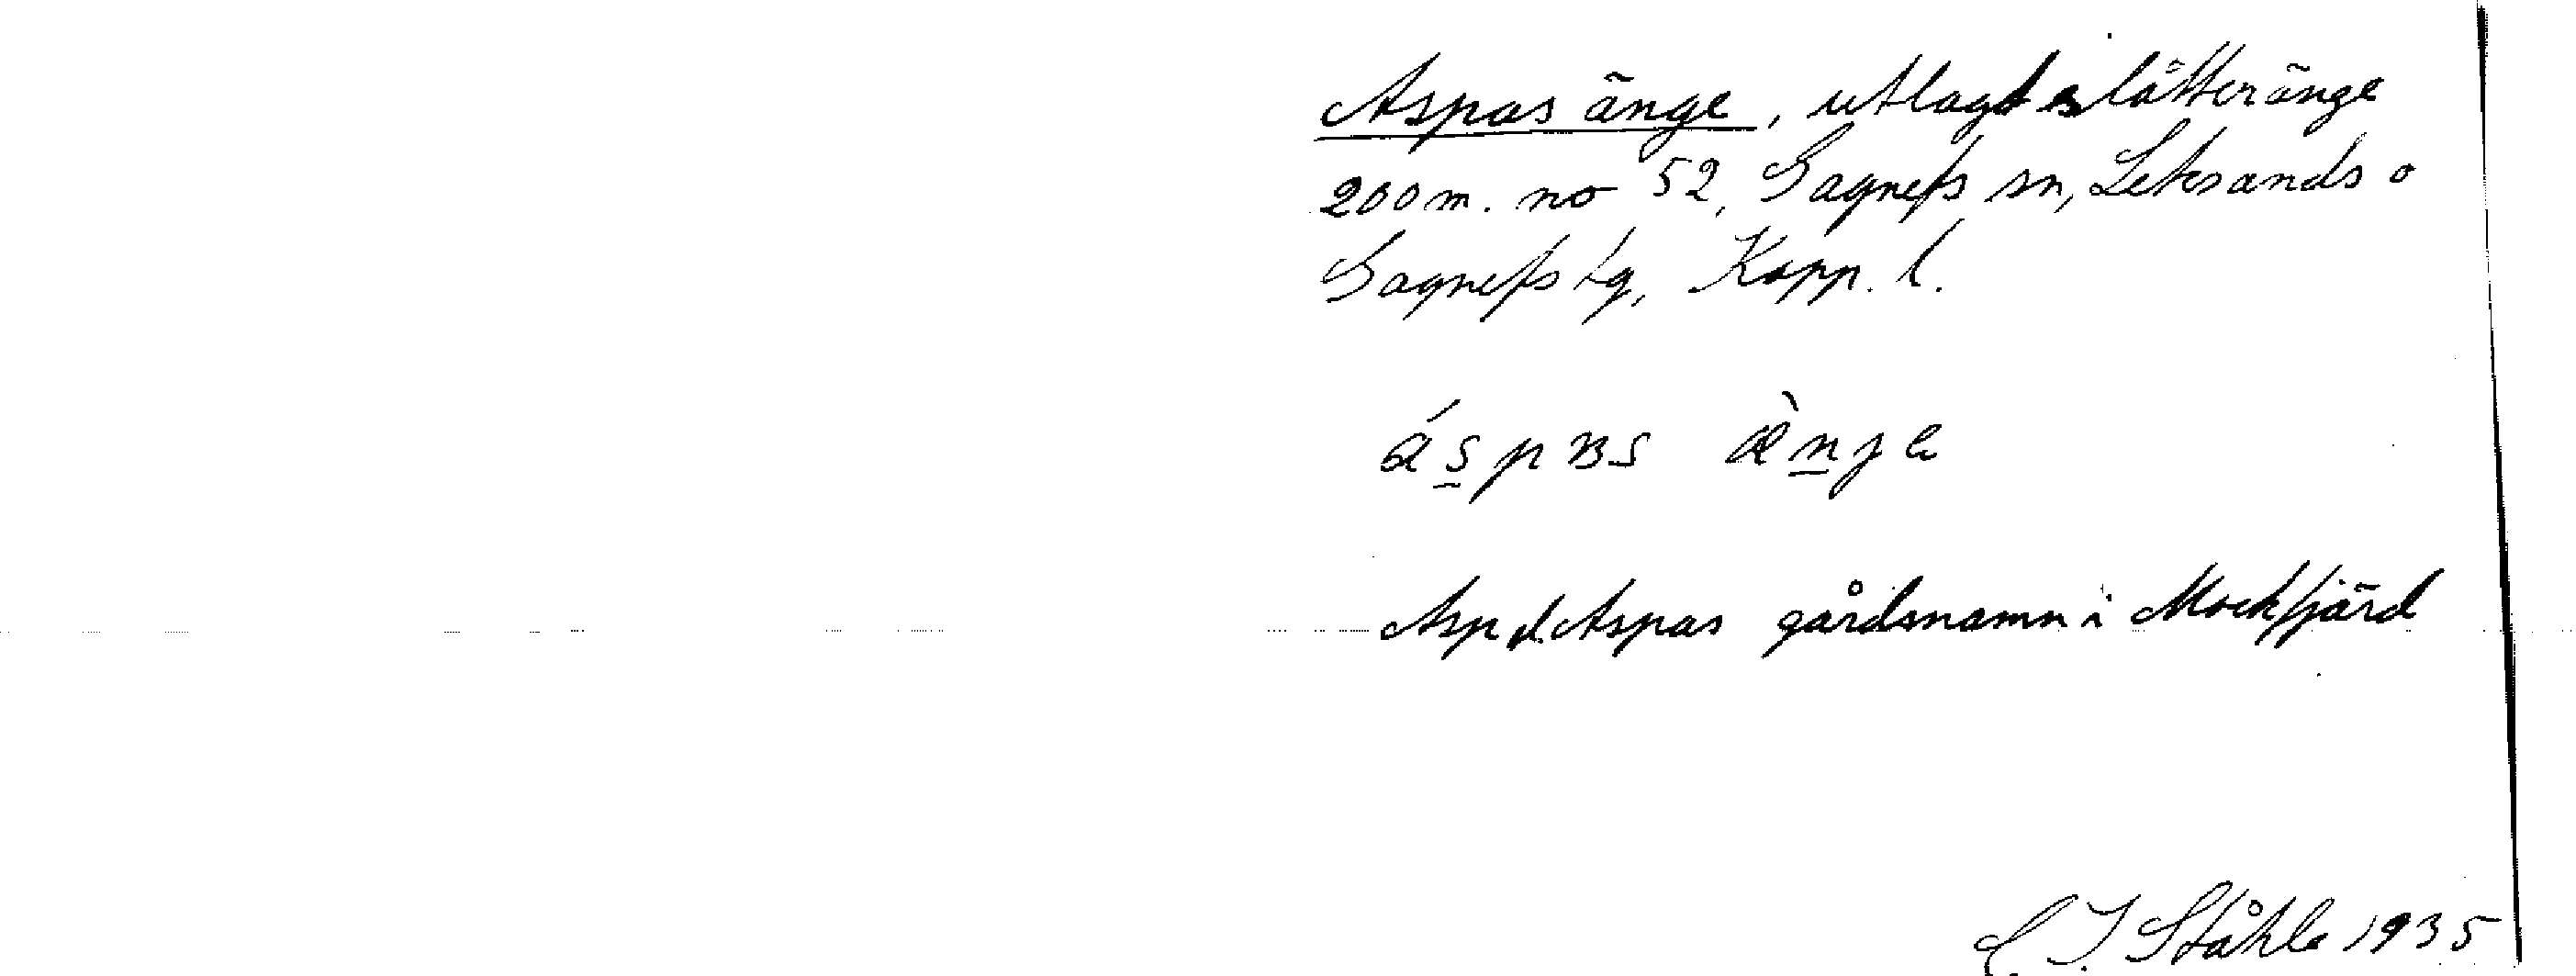 Aspas änge, utlagt slåtteränge
200 m. no 52, Gagnefs sn, Leksands o
Gagnefs tg, Kopp. l.
áspɐs ǽnje
Asp l. Aspas gårdsnamn i Mockfjärd
C. I. Ståhle 1935